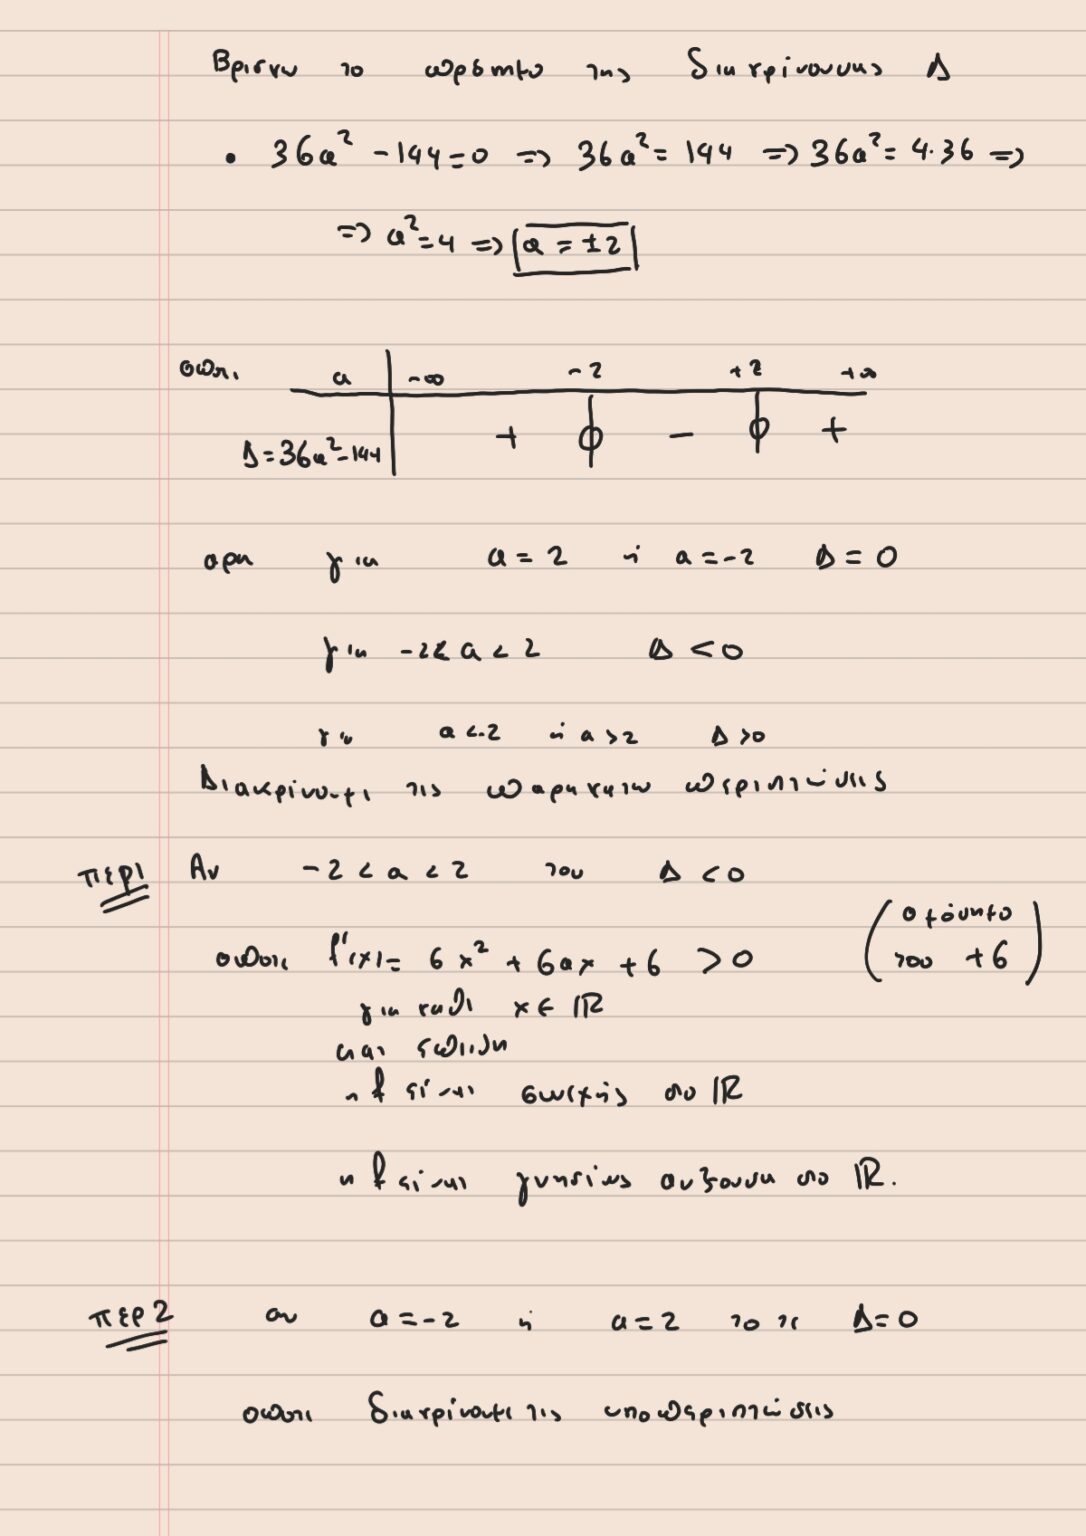 Βρισκω το προσημο της διακρίνουσας Δ
• 36α² - 144 = 0 => 36α² = 144 => 36α² = 4·36 =>
=> α² = 4 => α = ±2
οποτε α -∞ -2 +2 +∞
Δ = 36α² - 144 + 0 - 0 +
αρα για α = 2 ή α = -2 Δ = 0
για -2 < α < 2 Δ < 0
για α < -2 ή α > 2 Δ > 0
Διακρίνουμε τις παρακατω περιπτώσεις
περ1 Αν -2 < α < 2 τοτε Δ < 0
οποτε f'(x) = 6x² + 6αx + 6 > 0 (ομόσημο του +6)
για καθε x ∈ ℝ
και επειδη
η f είναι συνεχής στο ℝ
η f είναι γνησίως αυξουσα στο ℝ.
περ2 αν α = -2 ή α = 2 τοτε Δ = 0
οποτε διακρίνουμε τις υποπεριπτώσεις